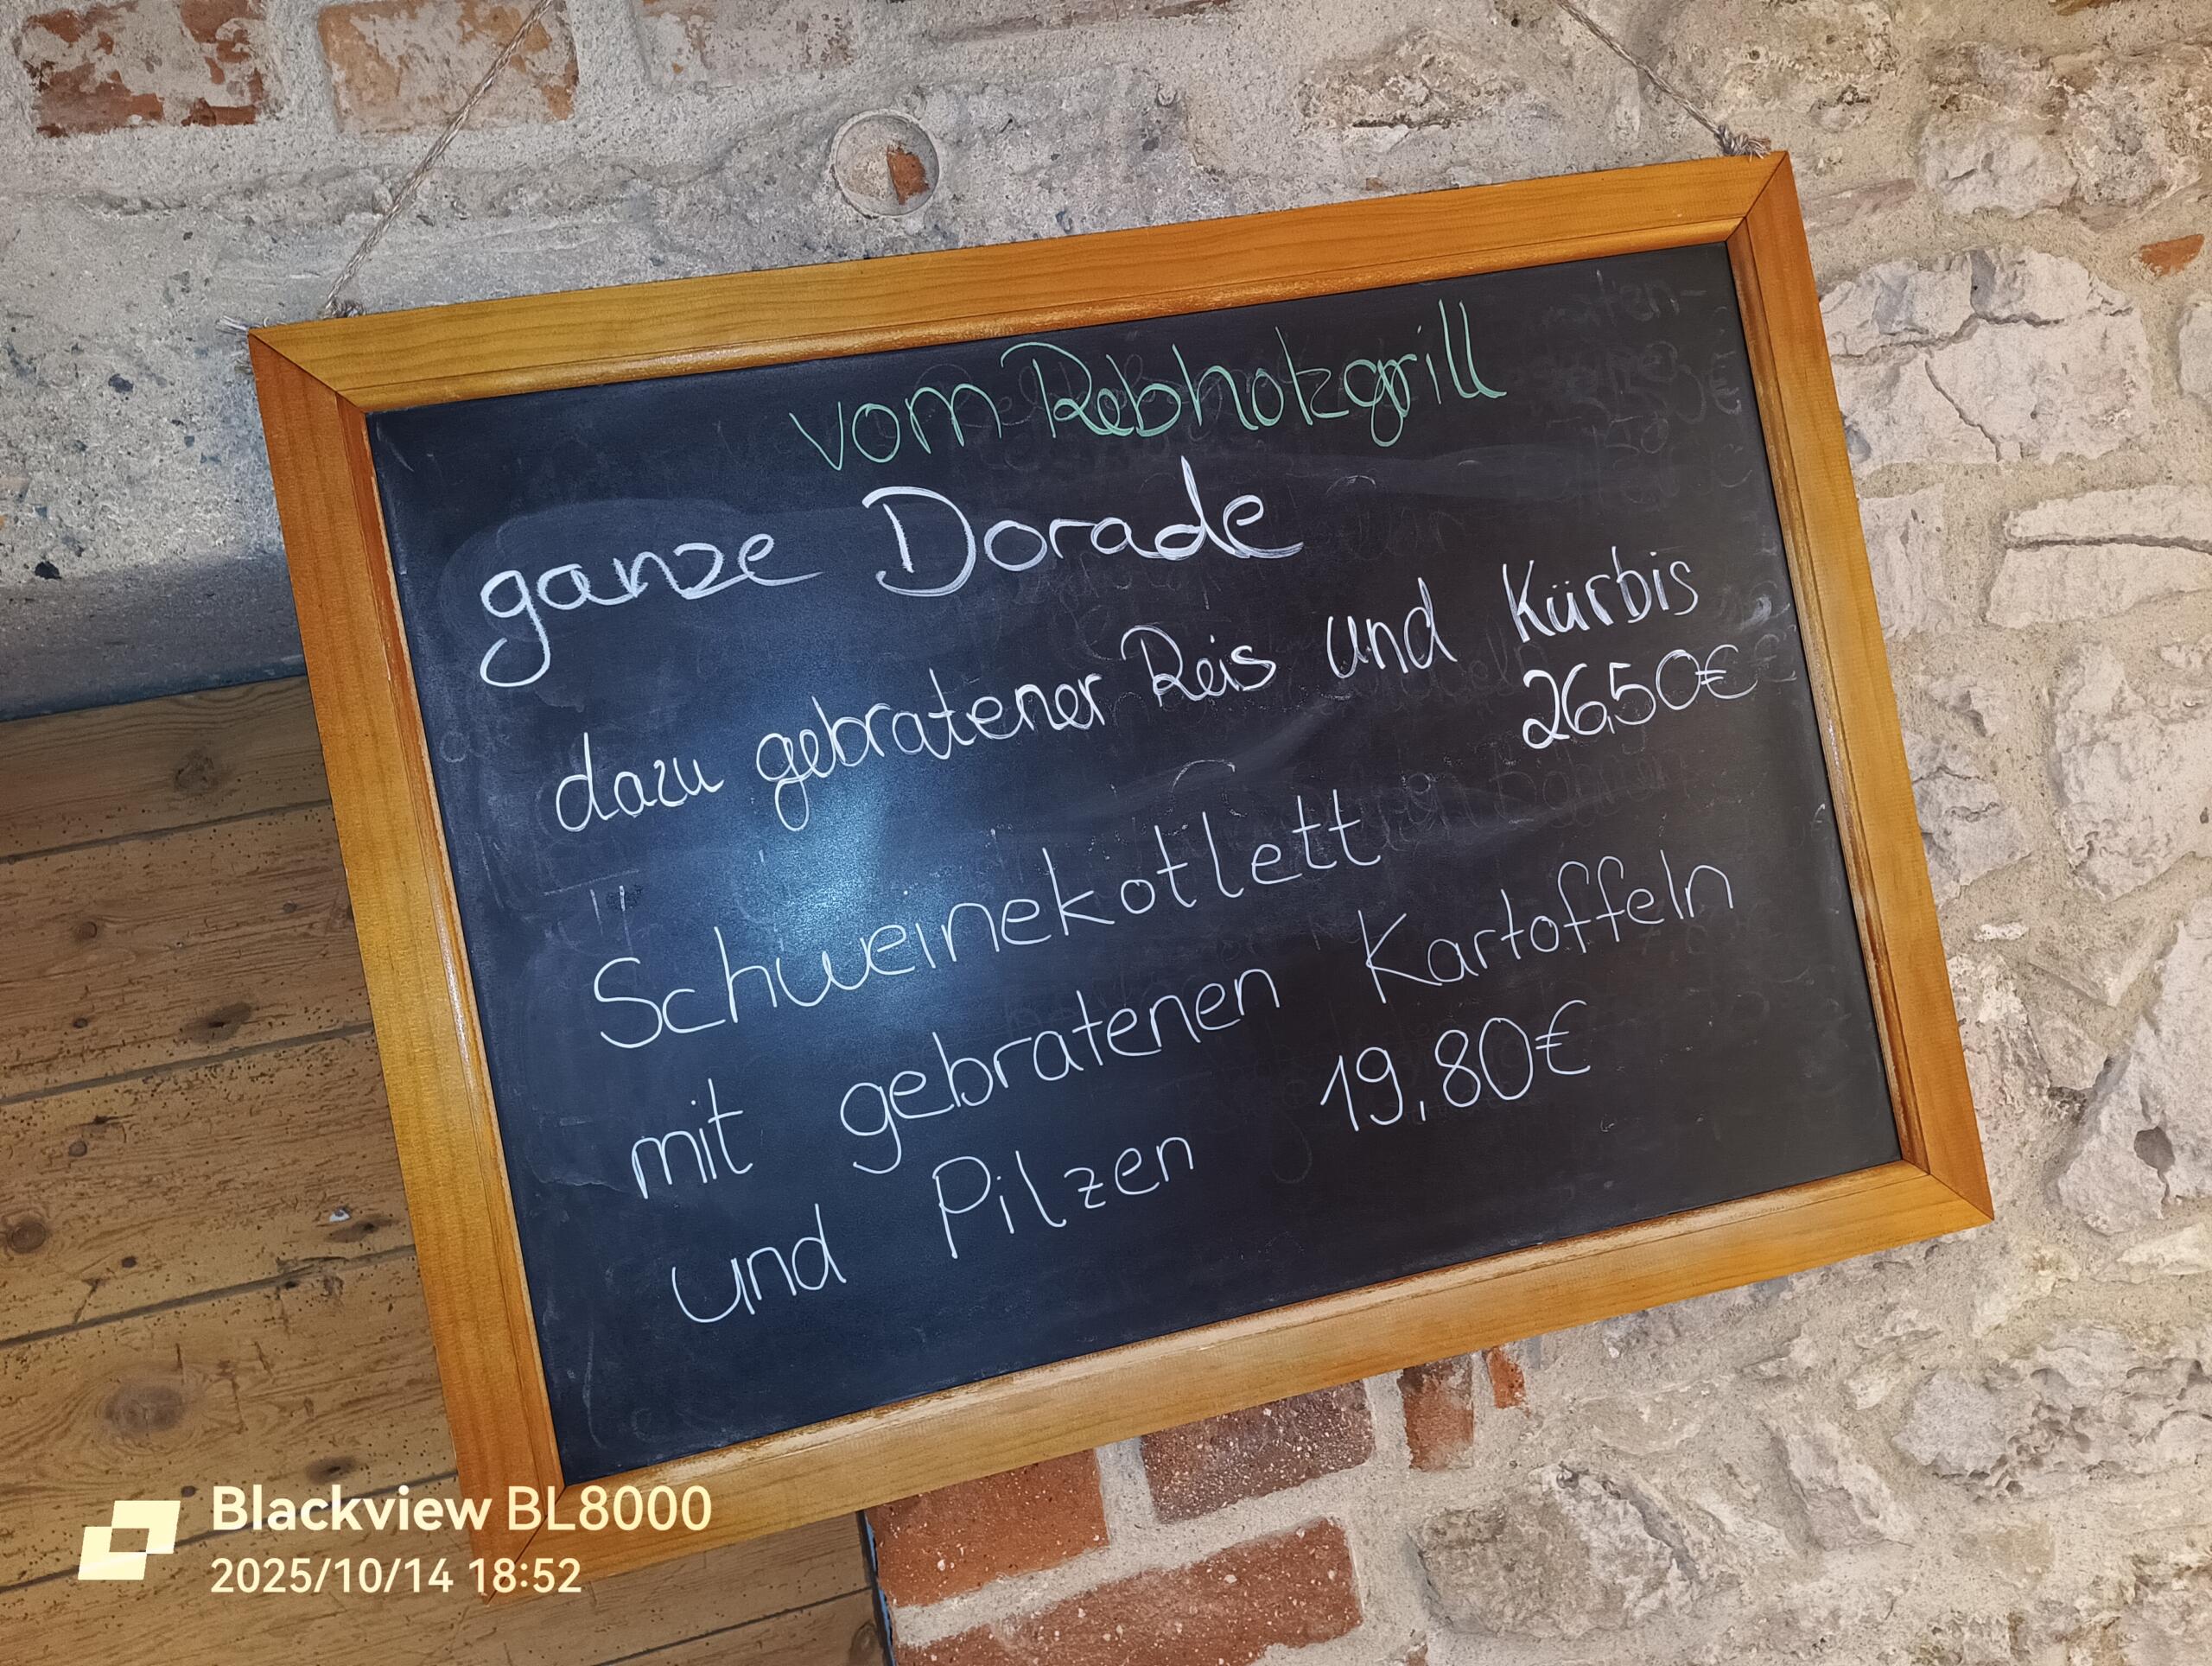 vom Rebholzgrill
ganze Dorade
dazu gebratener Reis und Kürbis
26,50€
Schweinekotlett
mit gebratenen Kartoffeln
und Pilzen 19,80€
Blackview BL8000
2025/10/14 18:52